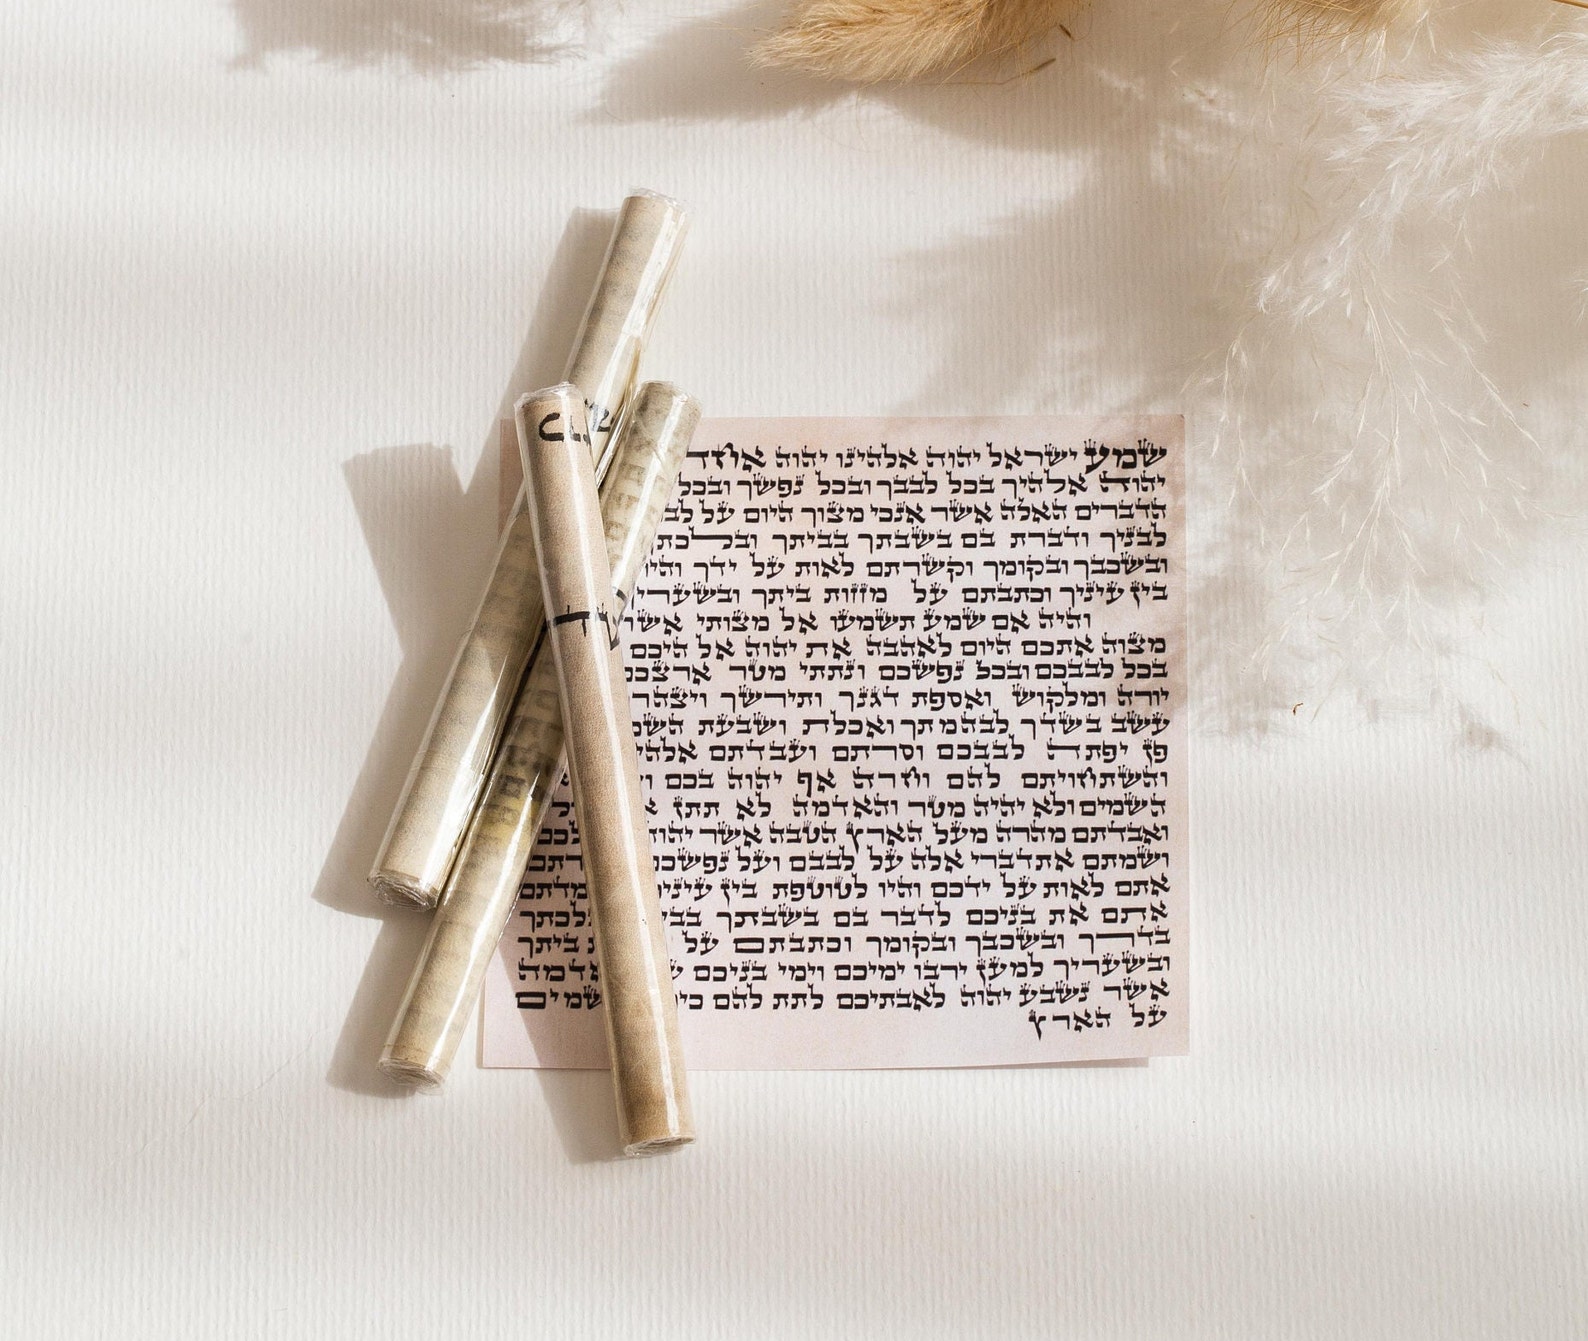 שמע ישראל יהוה אלהינו יהוה אחד
יהוה אלהיך בכל לבבך ובכל נפשך ובכל
הדברים האלה אשר אנכי מצוך היום על
לבניך ודברת בם בשבתך בביתך ובלכתך
ובשכבך ובקומך וקשרתם לאות על ידך והיו
בין עיניך וכתבתם על מזזות ביתך ובשעריך
והיה אם שמע תשמעו אל מצותי אשר
מצוה אתכם היום לאהבה את יהוה אלהיכם
בכל לבבכם ובכל נפשכם ונתתי מטר ארצכם
יורה ומלקוש ואספת דגנך ותירשך ויצהר
עשב בשדך לבהמתך ואכלת ושבעת
פן יפתה לבבכם וסרתם ועבדתם
והשתחויתם להם וחרה אף יהוה בכם
השמים ולא יהיה מטר והאדמה לא תתן
ואבדתם מהרה מעל הארץ הטבה אשר יהוה
ושמתם את דברי אלה על לבבם ועל נפשכם
אתם לאות על ידכם והיו לטוטפת בין
אתם את בניכם לדבר בם בשבתך
בדרך ובשכבך ובקומך וכתבתם על ביתך
ובשעריך למען ירבו ימיכם וימי בניכם
אשר נשבע יהוה לאבתיכם לתת להם
על הארץ